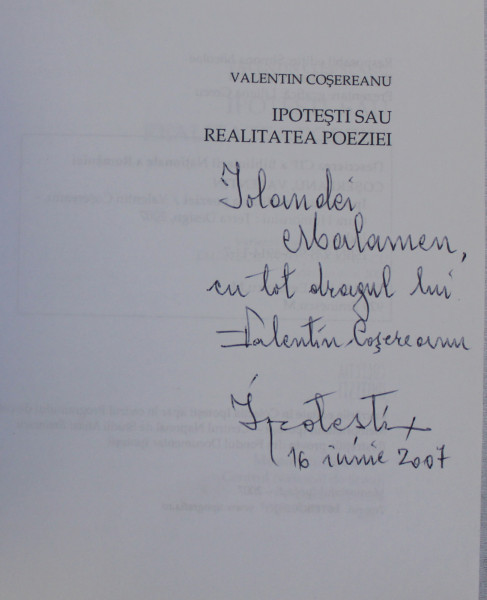 VALENTIN COȘEREANU
IPOTEȘTI SAU
REALITATEA POEZIEI
Iolandei
Malamen,
cu tot dragul lui
Valentin Coșereanu
Ipotești
16 iunie 2007